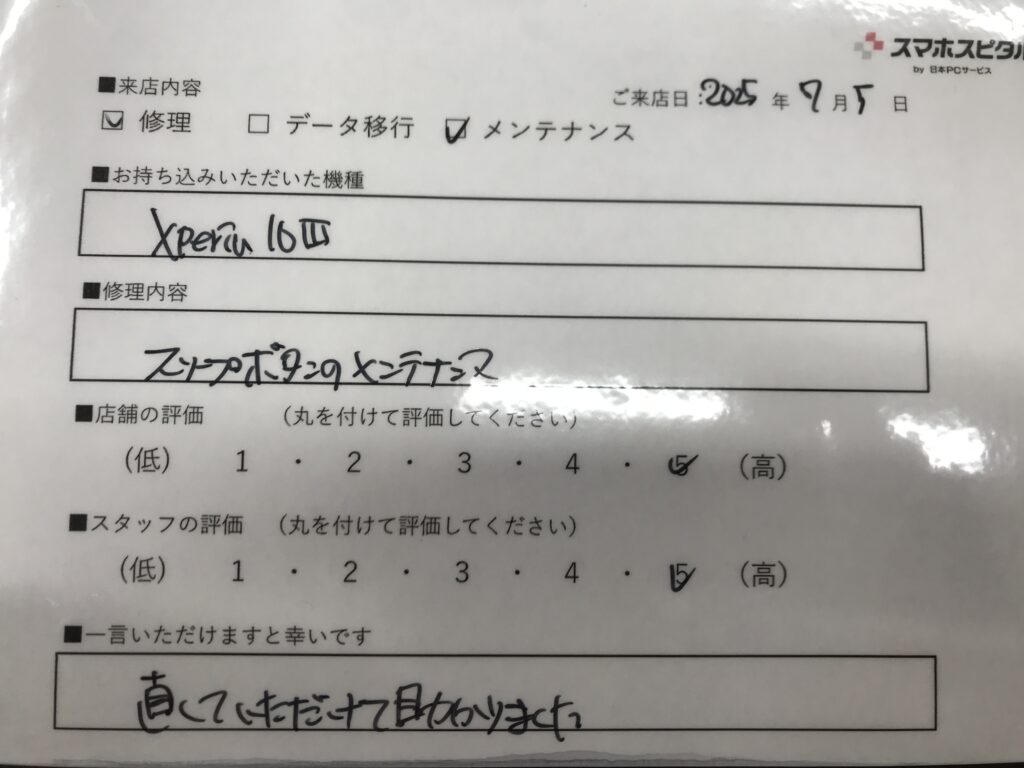 スマホスピタル
by 日本PCサービス
■来店内容
ご来店日:2025 年 7 月 5 日
☑ 修理 ☐ データ移行 ☑ メンテナンス
■お持ち込みいただいた機種
Xperia 10 III
■修理内容
スリープボタンのメンテナンス
■店舗の評価 (丸を付けて評価してください)
(低) 1 ・ 2 ・ 3 ・ 4 ・ 5 (高)
■スタッフの評価 (丸を付けて評価してください)
(低) 1 ・ 2 ・ 3 ・ 4 ・ 5 (高)
■一言いただけますと幸いです
直していただけて助かりました。